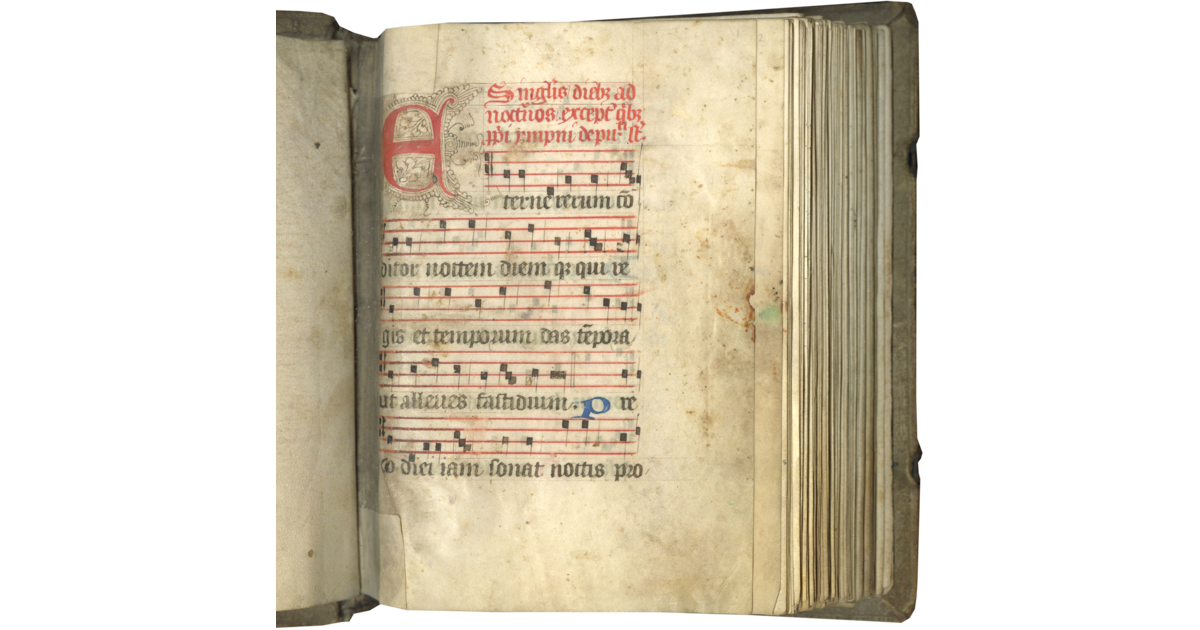 Singl'is dieb3 ad
noct'nos except' q'b3
ppi ympni depu'ti st'.
A
terne rerum cō
ditor noctem diem q3 qui re
gis et temporum das tēpora
ut alleues fastidium. Pre
co diei iam sonat noctis pro